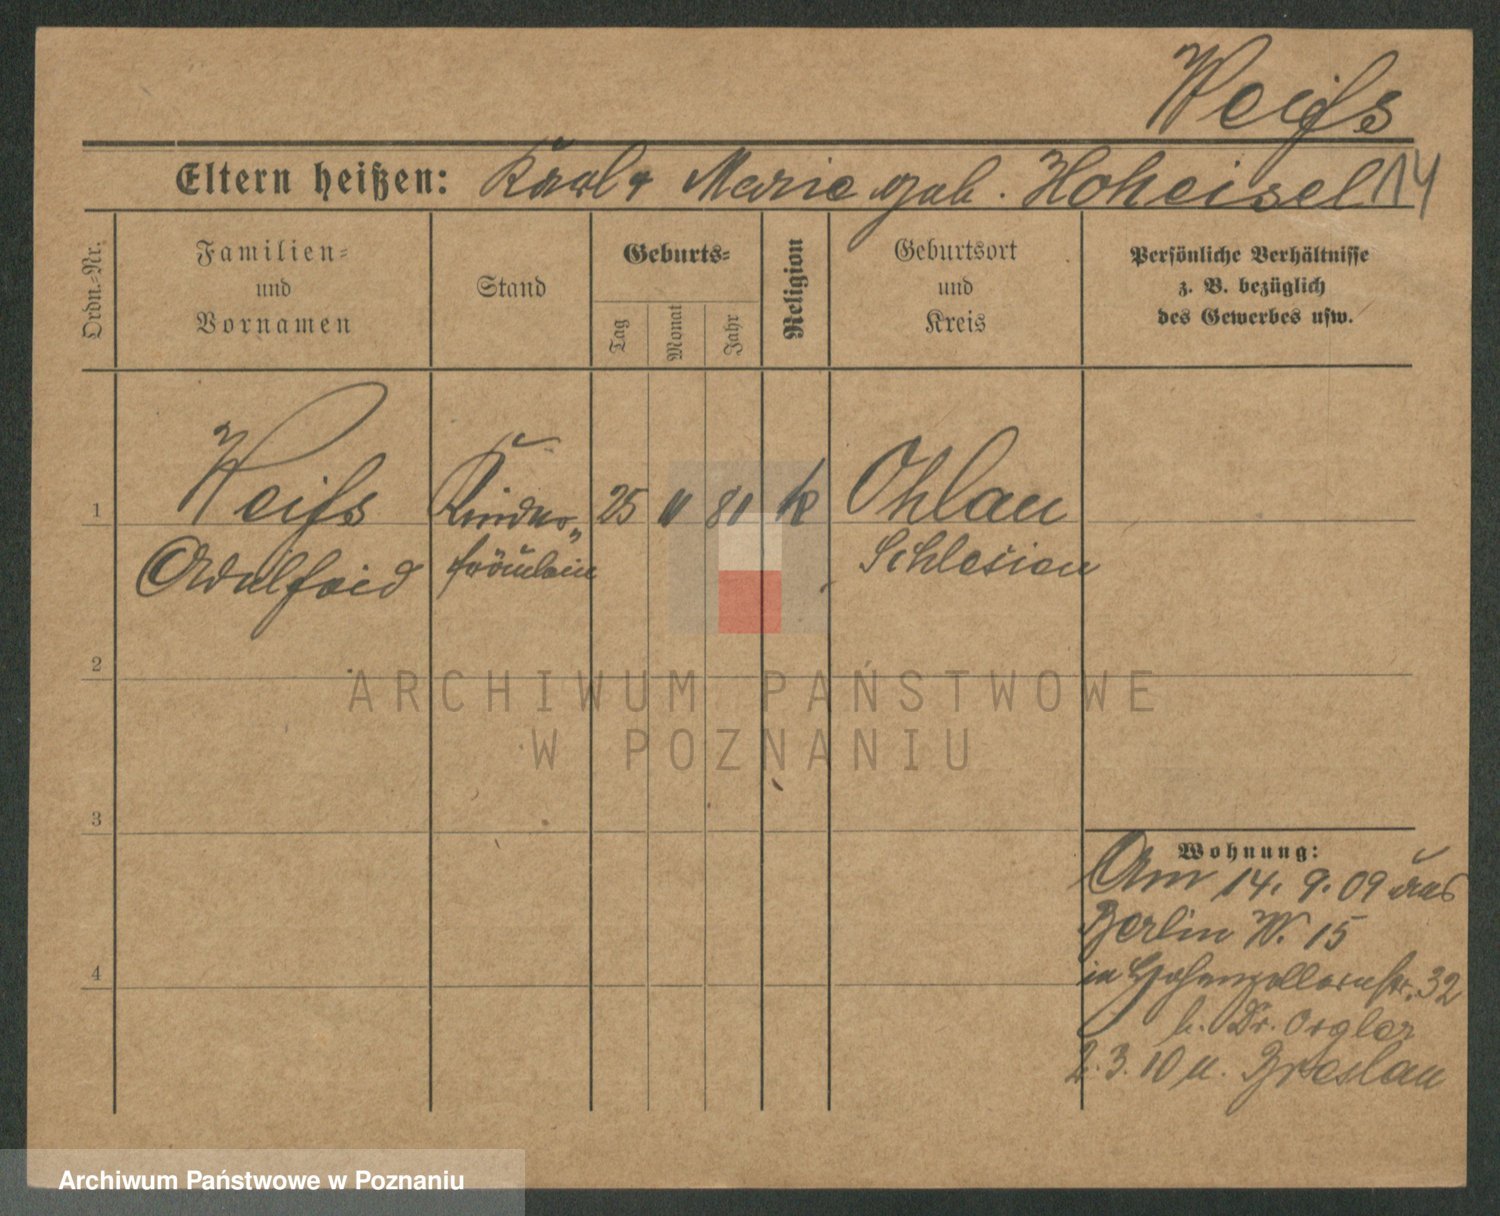 Weiß
Eltern heißen: Karl + Marie geb. Hoheisel 14
Ordn.-Nr.
Familien-
und
Vornamen
Stand
Geburts-
Tag
Monat
Jahr
Religion
Geburtsort
und
Kreis
Persönliche Verhältnisse
z. B. bezüglich
des Gewerbes usw.
1
Weiß Kinder- 25 11 81 k Ohlau
fräulein Schlesien
2
ARCHIWUM PAŃSTWOWE
W POZNANIU
3
Wohnung:
Am 14. 9. 09 aus
Berlin W. 15
in Hohenzollernstr. 32
b. Dr. Orgler
2. 3. 10 n. Breslau
4
Archiwum Państwowe w Poznaniu